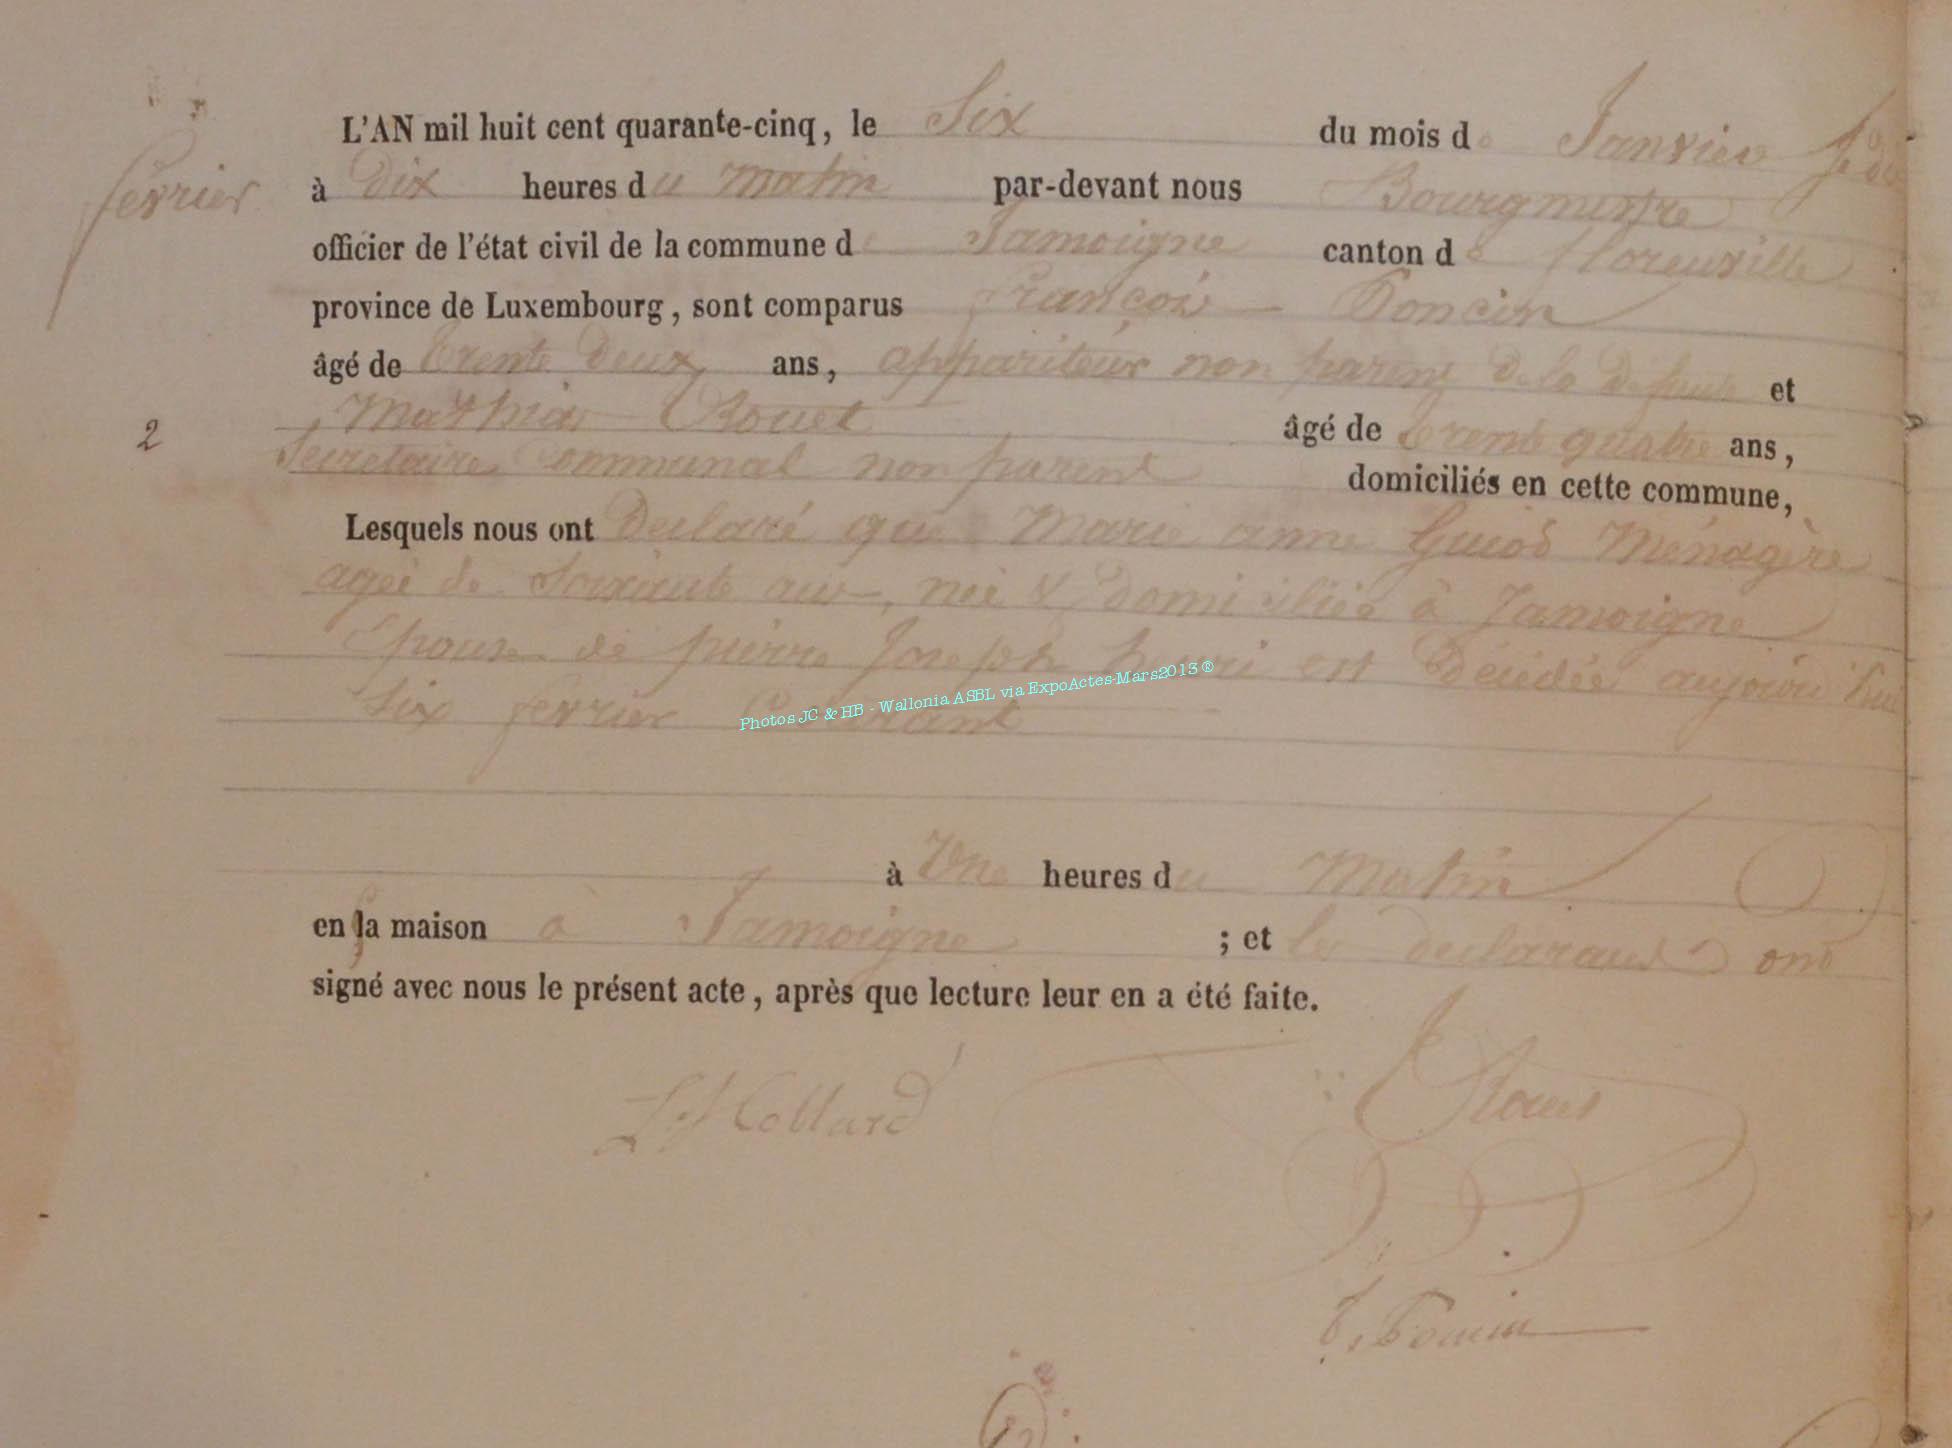 L'AN mil huit cent quarante-cinq, le Six du mois de Janvier
février
à Dix heures du Matin par-devant nous Bourgmestre
officier de l'état civil de la commune de Jamoigne canton de Florenville
province de Luxembourg, sont comparus François Poncin
âgé de trente Deux ans, appariteur non parent de la defunte et
Mathias Rouet âgé de trente quatre ans,
2
Secretaire Communal non parent domiciliés en cette commune,
Lesquels nous ont Declaré que Marie anne Guiot Ménagère
agée de Soixante ans, née & domiciliée à Jamoigne
Epouse de pierre Joseph henri est Décédée aujourd'hui
Six fevrier Courant
Photos JC & HB - Wallonia ASBL via ExpoActes-Mars2013 ®
à Une heures du Matin
en sa maison à Jamoigne ; et les declarants ont
signé avec nous le présent acte, après que lecture leur en a été faite.
Collard
Rouet
Poncin